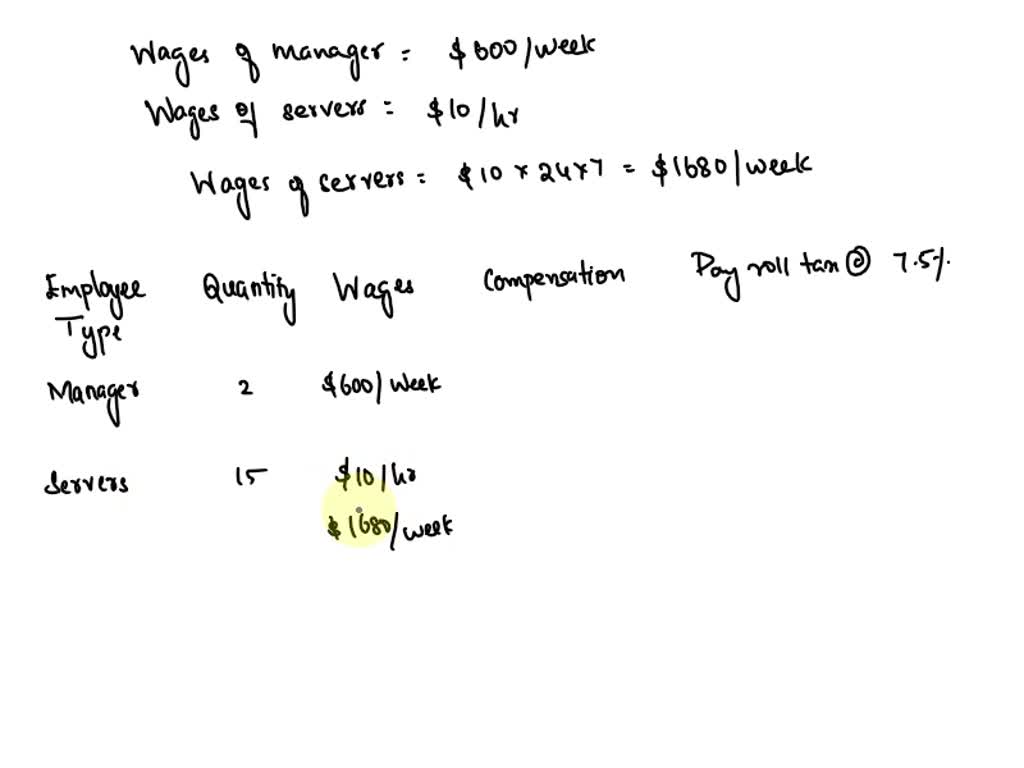 Wages of manager = $600/week
Wages of servers = $10/hr
Wages of servers = $10 × 24×7 = $1680/week
Employee Type Quantity Wages Compensation Pay roll tax @ 7.5%.
Manager 2 $600/week
Servers 15 $10/hr
$1680/week